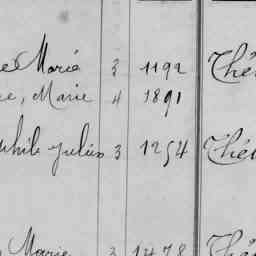 e Marie 3 1192 Thé
e, Marie 4 1891
phile Julien 3 1254 Thé
Marie 3 1478 Thé